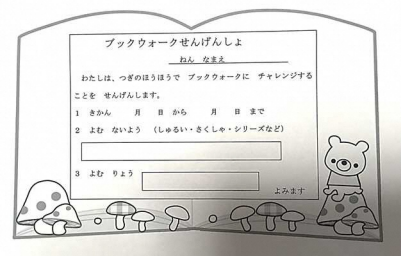 ブックウォークせんげんしょ
ねん　なまえ
わたしは、つぎのほうほうで　ブックウォークに　チャレンジする
ことを　せんげんします。
1　きかん　　月　　日　から　　月　　日　まで
2　よむ　ないよう　（しゅるい・さくしゃ・シリーズなど）
3　よむ　りょう
よみます